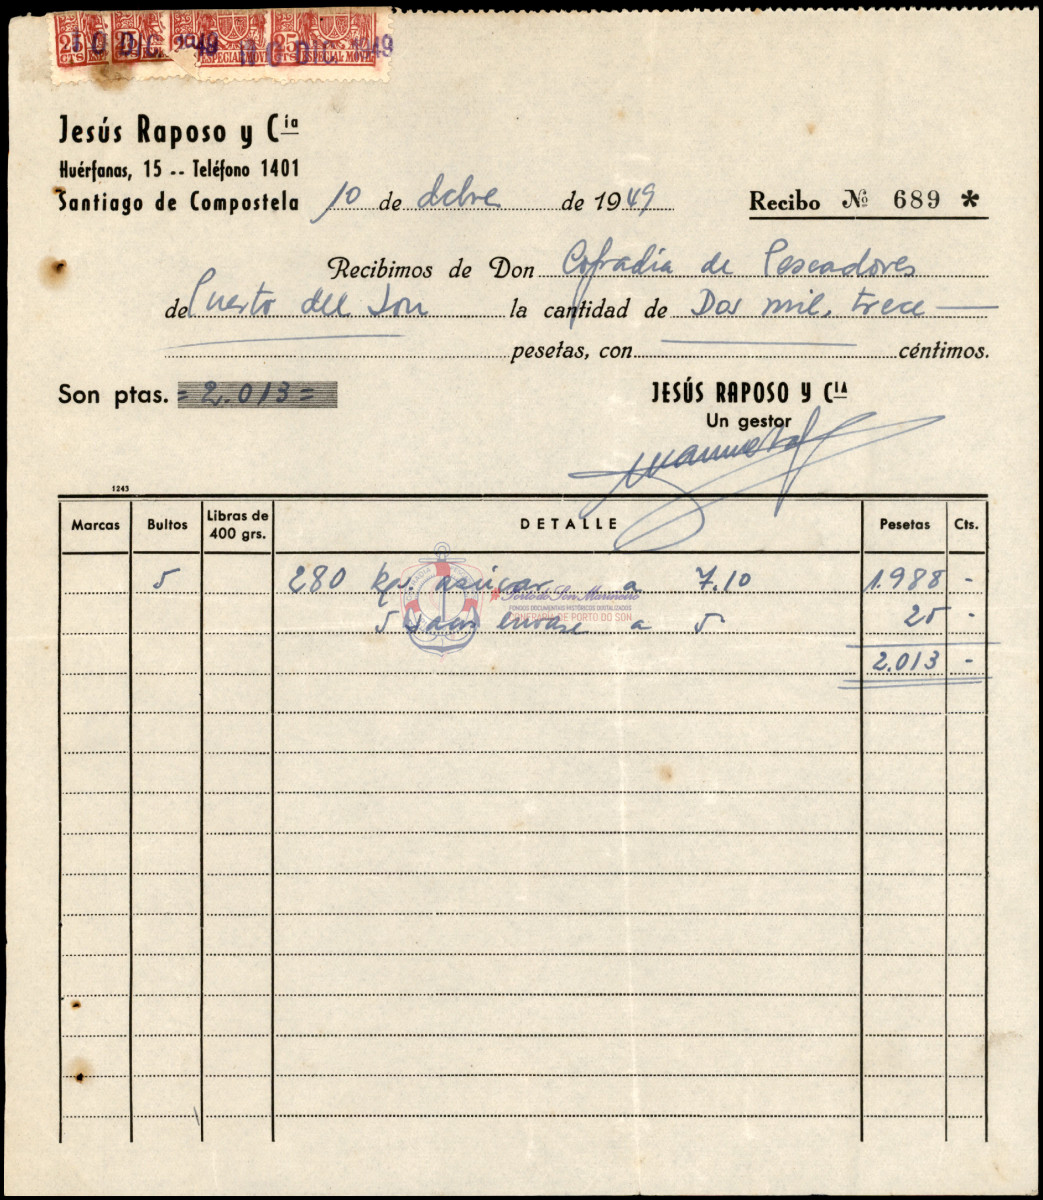 25 25 25
CTS ESPECIAL MOVIL CTS ESPECIAL MOVIL
10 DIC. 1949 10 DIC. 1949
Jesús Raposo y Cía
Huérfanas, 15 -- Teléfono 1401
Santiago de Compostela 10 de dcbre de 1949 Recibo Nº 689 *
Recibimos de Don Cofradia de Pescadores
de Puerto del Son la cantidad de Dos mil, trece
pesetas, con céntimos.
Son ptas. =2.013=
JESÚS RAPOSO Y CIA
Un gestor
1243
Marcas Bultos Libras de 400 grs. DETALLE Pesetas Cts.
5 280 kgs. azúcar a 7.10 1.988 -
5 Sacos envase a 5 25 -
2.013 -
#Porto do Son Marineiro
FONDOS DOCUMENTAIS HISTÓRICOS DIXITALIZADOS
CONFRARÍA DE PORTO DO SON